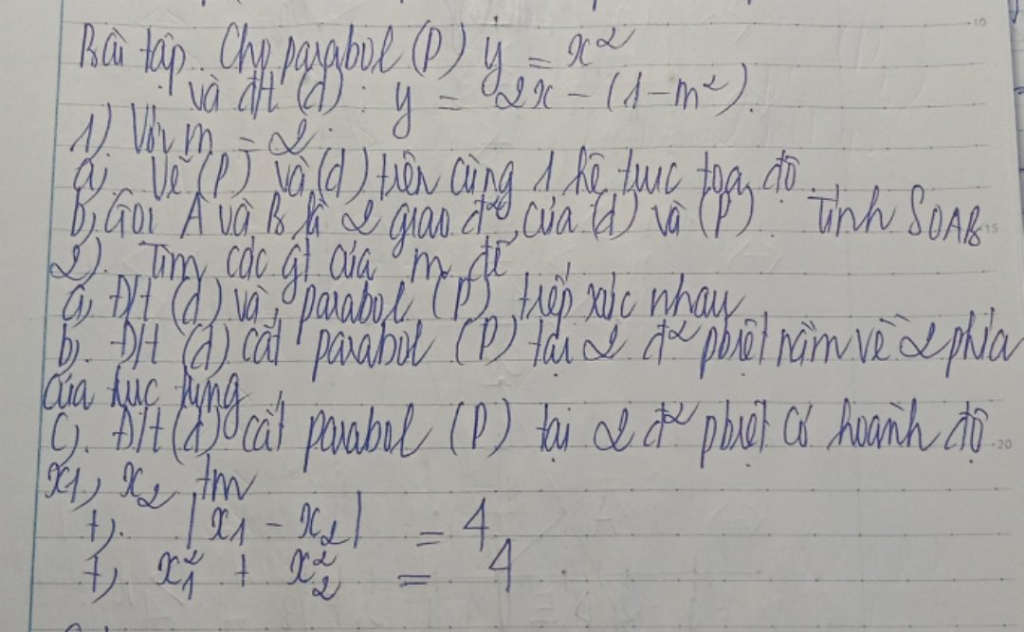 Bài tập. Cho parabol (P) y = x²
và đt (d): y = 2x - (1-m²).
1) Với m = 2.
a, Vẽ (P) và (d) trên cùng 1 hệ trục tọa độ.
b, Gọi A và B là 2 giao đ² của (d) và (P). Tính SOAB
2). Tìm các gt của m để
a, Đt (d) và parabol (P) tiếp xúc nhau
b. Đt (d) cắt parabol (P) tại 2 đ² phbiệt nằm về 2 phía
của trục tung
c). Đt (d) cắt parabol (P) tại 2 đ² phbiệt có hoành độ
x1, x2 tm
+). |x1 - x2| = 4
+, x1² + x2² = 4